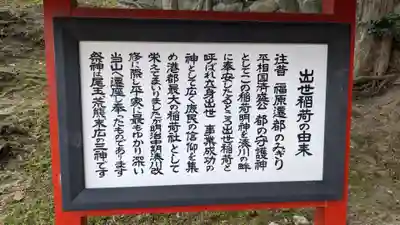 出世稲荷の由来
往昔 福原遷都のみぎり
平相国清盛公 都の守護神
としてこの稲荷明神を湊川の畔
に奉安したるところ出世稲荷と
呼ばれ立身出世 事業成功の
神として広く庶民の信仰を集
め港都最大の稲荷社として
栄えてまいりましたが明治中期湊川改
修に際し平家に最もゆかり深い
当山へ遷座し奉ったものであります
祭神は尾玉 荒熊 末広の三神です